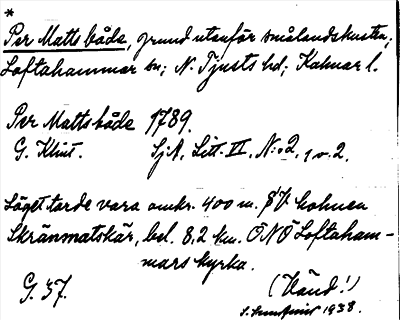 *
Per Matts både, grund utanför smålandskusten;
Loftahammar sn; N. Tjusts hd; Kalmar l.
Per Mattsbåde 1789.
G. Klint. SjA, Litt. II, N:o 2, 1 o. 2.
Läget torde vara omkr. 400 m. SV. holmen
Skränmatskär, bel. 8,2 km. ÖNÖ Loftaham-
mars kyrka.
G. 37. (Vänd!)
1938.